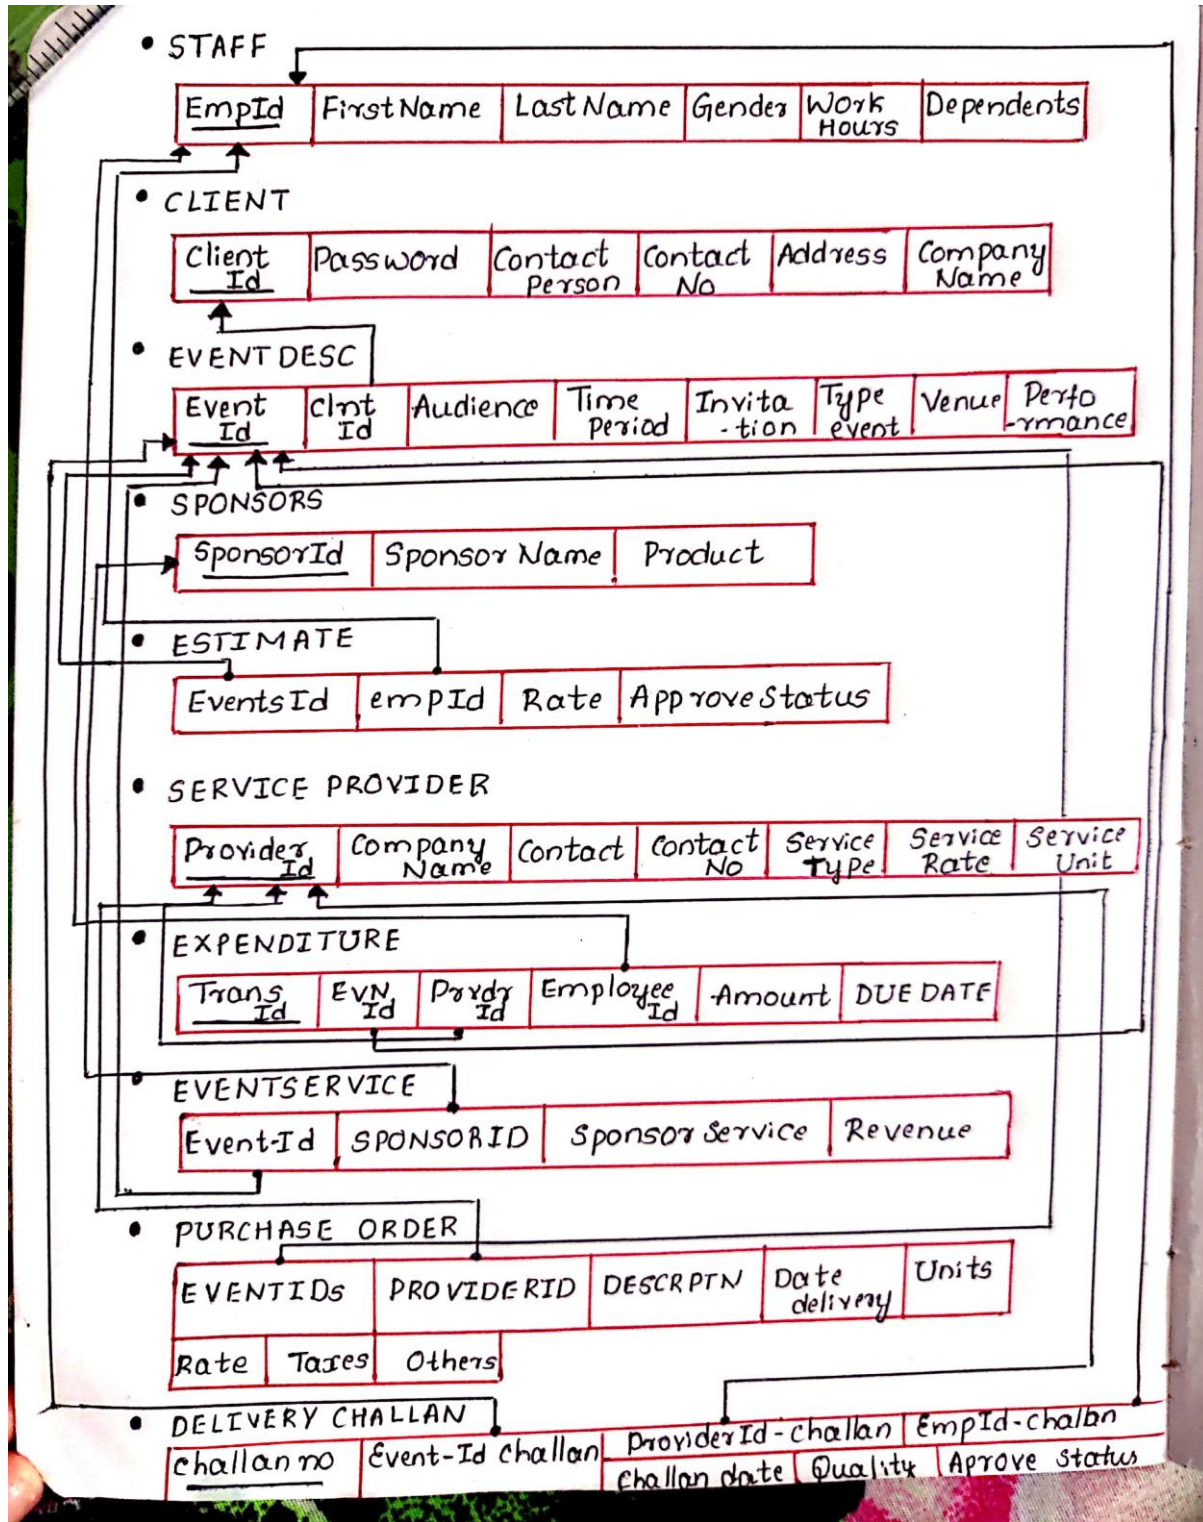 • STAFF
EmpId FirstName LastName Gender Work Hours Dependents
• CLIENT
Client Id Password Contact Person Contact No Address Company Name
• EVENT DESC
Event Id Clnt Id Audience Time Period Invita-tion Type event Venue Perfo-rmance
• SPONSORS
SponsorId Sponsor Name Product
• ESTIMATE
EventsId empId Rate ApproveStatus
• SERVICE PROVIDER
Provider Id Company Name Contact Contact No Service Type Service Rate Service Unit
• EXPENDITURE
Trans Id EVN Id Prvdr Id Employee Id Amount DUE DATE
• EVENTSERVICE
Event-Id SPONSORID Sponsor Service Revenue
• PURCHASE ORDER
EVENTIDs PROVIDERID DESCRPTN Date delivery Units
Rate Taxes Others
• DELIVERY CHALLAN
challan no Event-Id Challan ProviderId-challan EmpId-challan
Challan date Quality Aprove Status